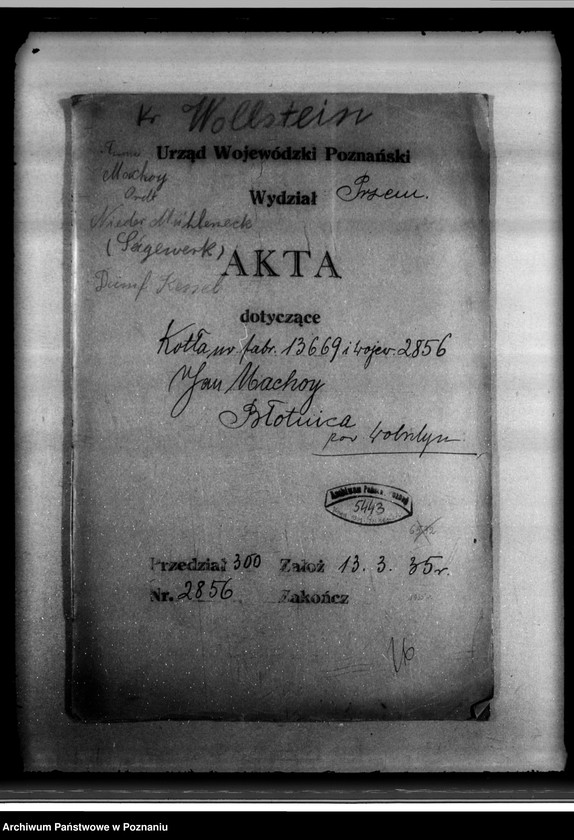 Kr Wollstein
Urząd Wojewódzki Poznański
Machoy
Wydział Przem.
Nieder Mühleneck
(Sägewerk)
AKTA
Dampf Kessel
dotyczące
Kotła nr. fabr. 13669 i wojew. 2856
Jan Machoy
Błotnica
pow Wolsztyn
5443
Przedział 300 Założ 13. 3. 35 r.
Nr. 2856 Zakończ
Archiwum Państwowe w Poznaniu